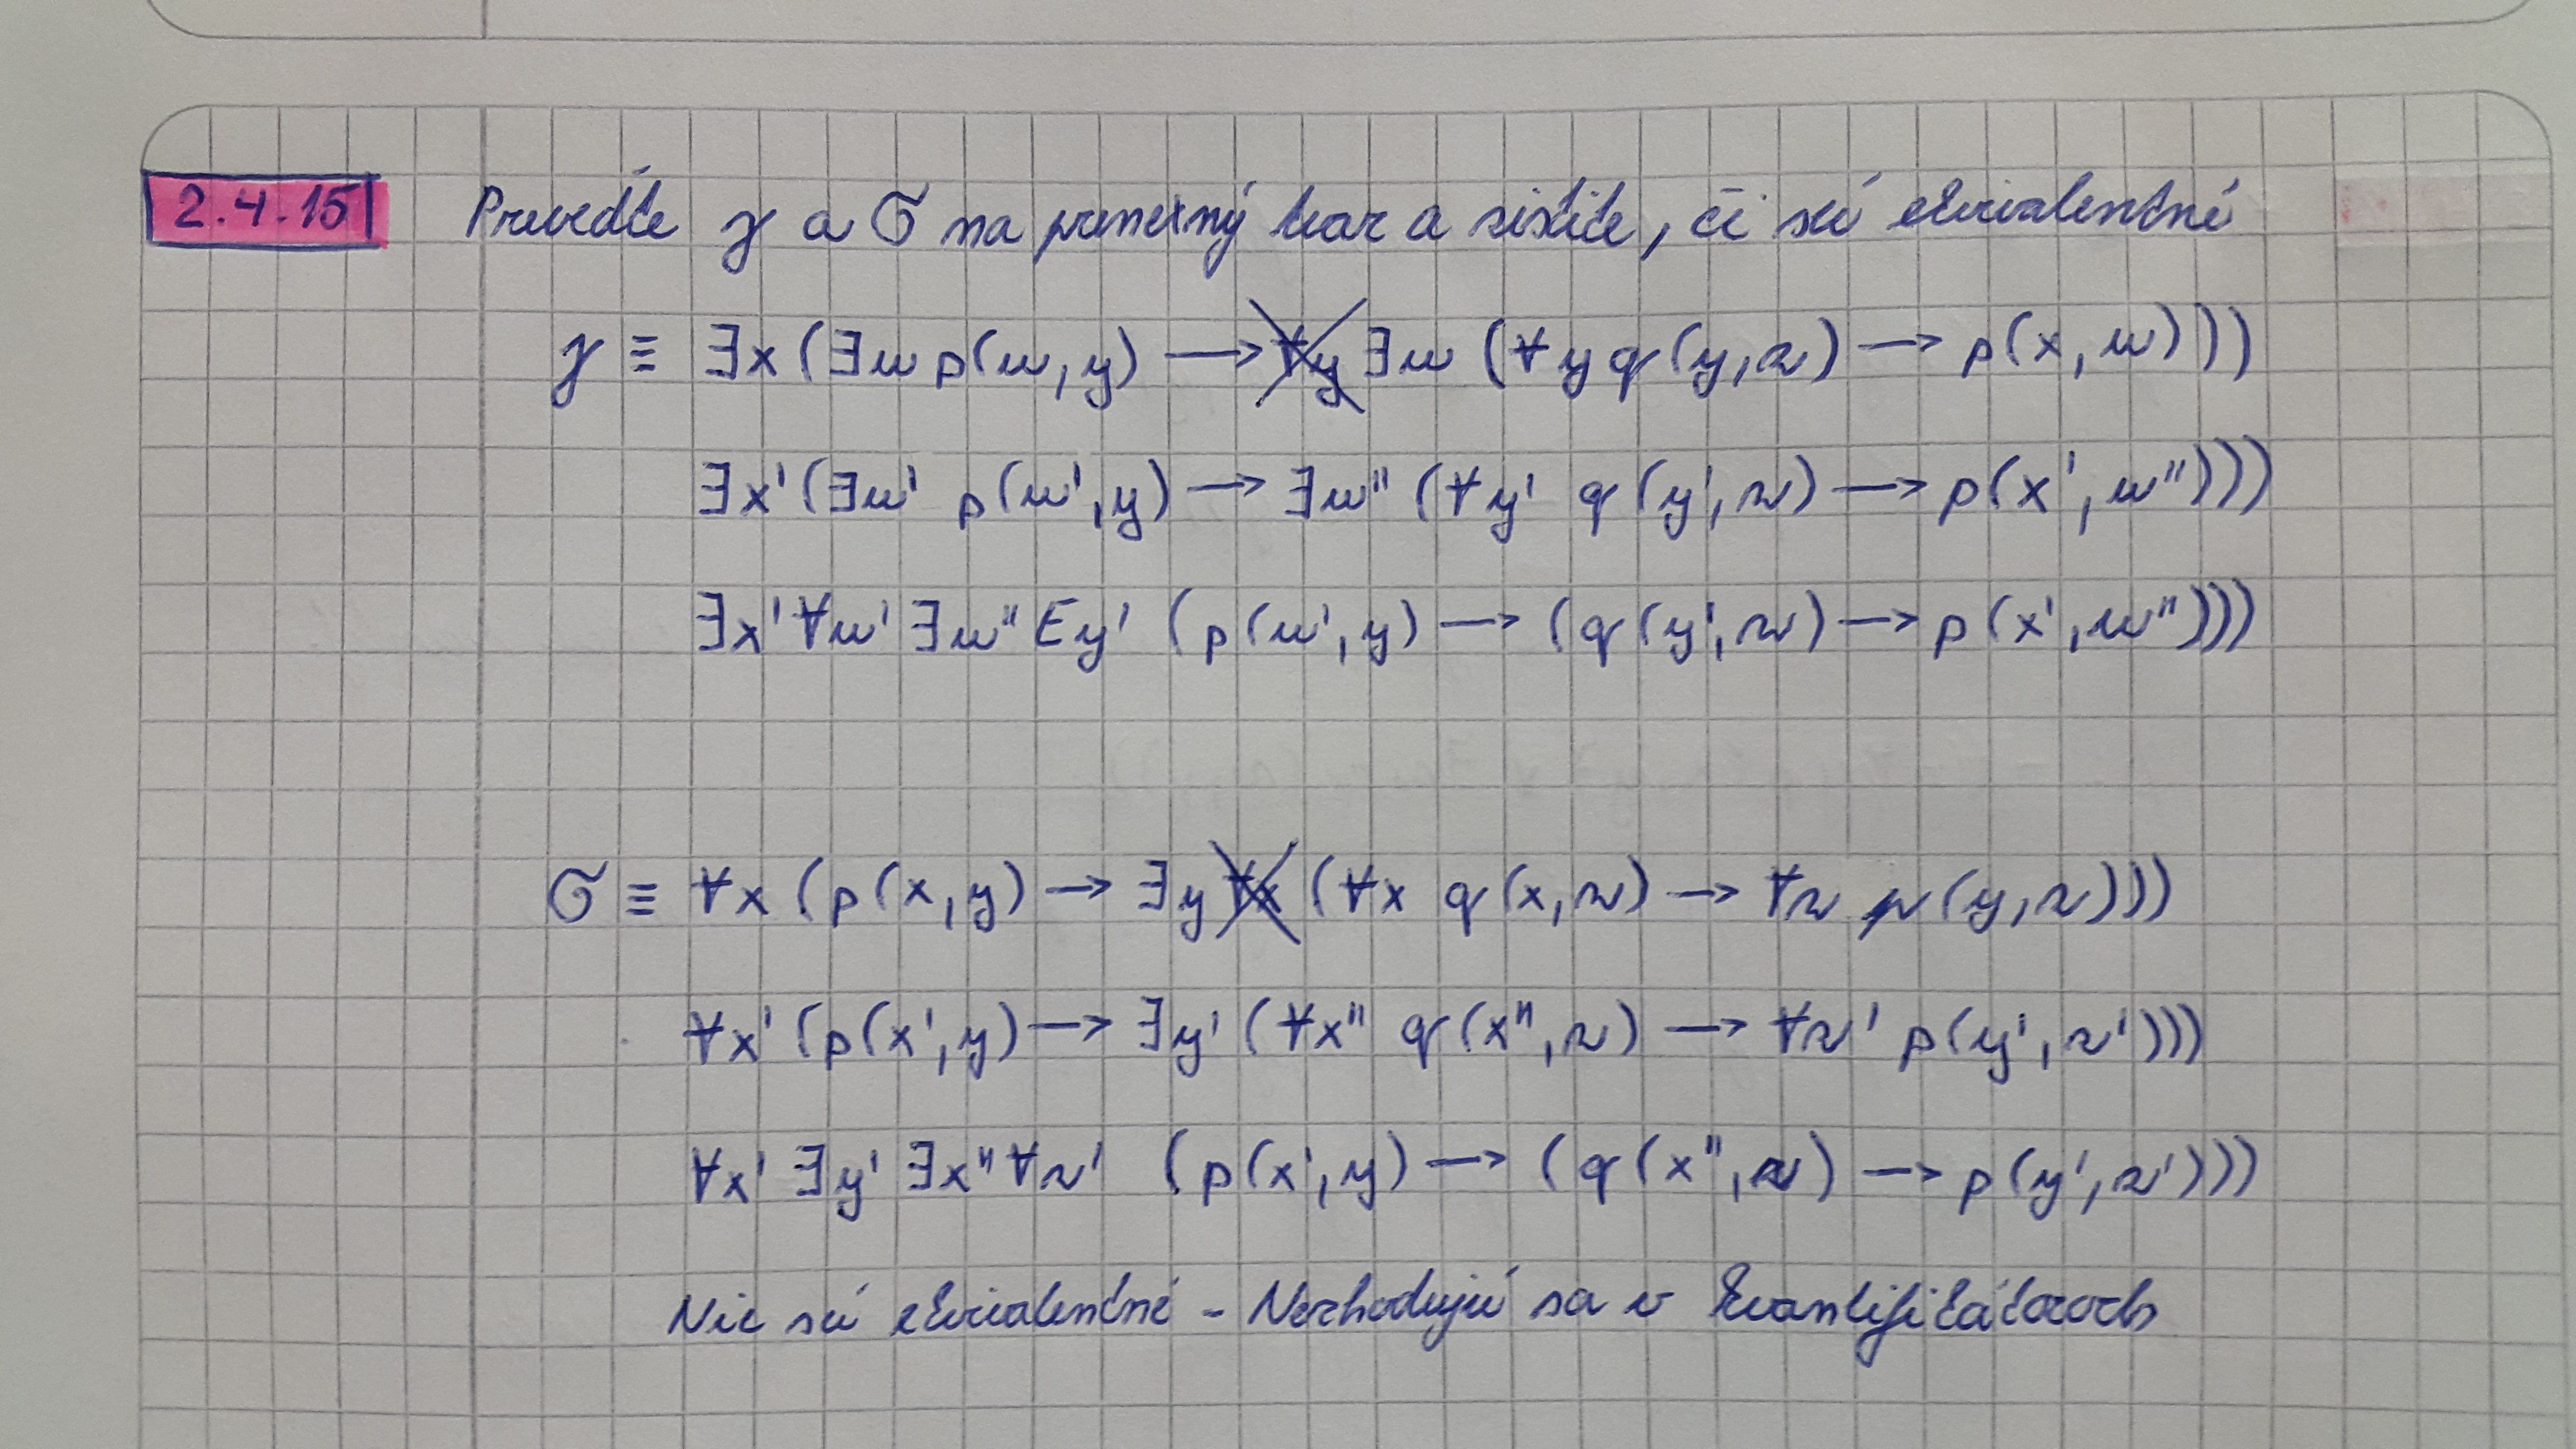 2.4.15 Preveďte γ a σ na prenexný tvar a zistite, či sú ekvivalentné
γ ≡ ∃x (∃u p(u,y) → ∀y ∃u (∀y q(y,z) → p(x,u)))
∃x' (∃u' p(u',y) → ∃u'' (∀y' q(y',z) → p(x',u'')))
∃x' ∀u' ∃u'' Ey' (p(u',y) → (q(y',z) → p(x',u'')))
σ ≡ ∀x (p(x,y) → ∃y ∀x (∀x q(x,z) → ∀z p(y,z)))
∀x' (p(x',y) → ∃y' (∀x'' q(x'',z) → ∀z' p(y',z')))
∀x' ∃y' ∃x'' ∀z' (p(x',y) → (q(x'',z) → p(y',z')))
Nie sú ekvivalentné - Nezhodujú sa v kvantifikátoroch